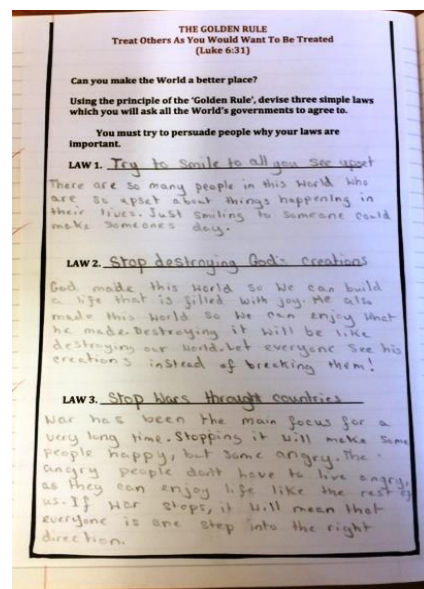 THE GOLDEN RULE
Treat Others As You Would Want To Be Treated
(Luke 6:31)
Can you make the World a better place?
Using the principle of the 'Golden Rule', devise three simple laws
which you will ask all the World's governments to agree to.
You must try to persuade people why your laws are
important.
LAW 1. Try to smile to all you see upset
There are so many people in this world who
are so upset about things happening in
their lives. Just smiling to someone could
make someones day.
LAW 2. Stop destroying God's creations
God made this world so we can build
a life that is filled with joy. He also
made this world so we can enjoy what
he made. Destroying it will be like
destroying our world. Let everyone see his
creations instead of breaking them!
LAW 3. Stop wars throught countries
War has been the main focus for a
very long time. Stopping it will make some
people happy, but some angry. The
angry people don't have to live angry,
as they can enjoy life like the rest of
us. If war stops, it will mean that
everyone is one step into the right
direction.